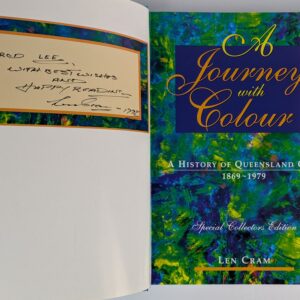 ROD LEE,
WITH BEST WISHES
AND
HAPPY READING
Len Cram - 1998
A
Journey
with
Colour
A HISTORY OF QUEENSLAND
1869~1979
Special Collectors Edition
LEN CRAM